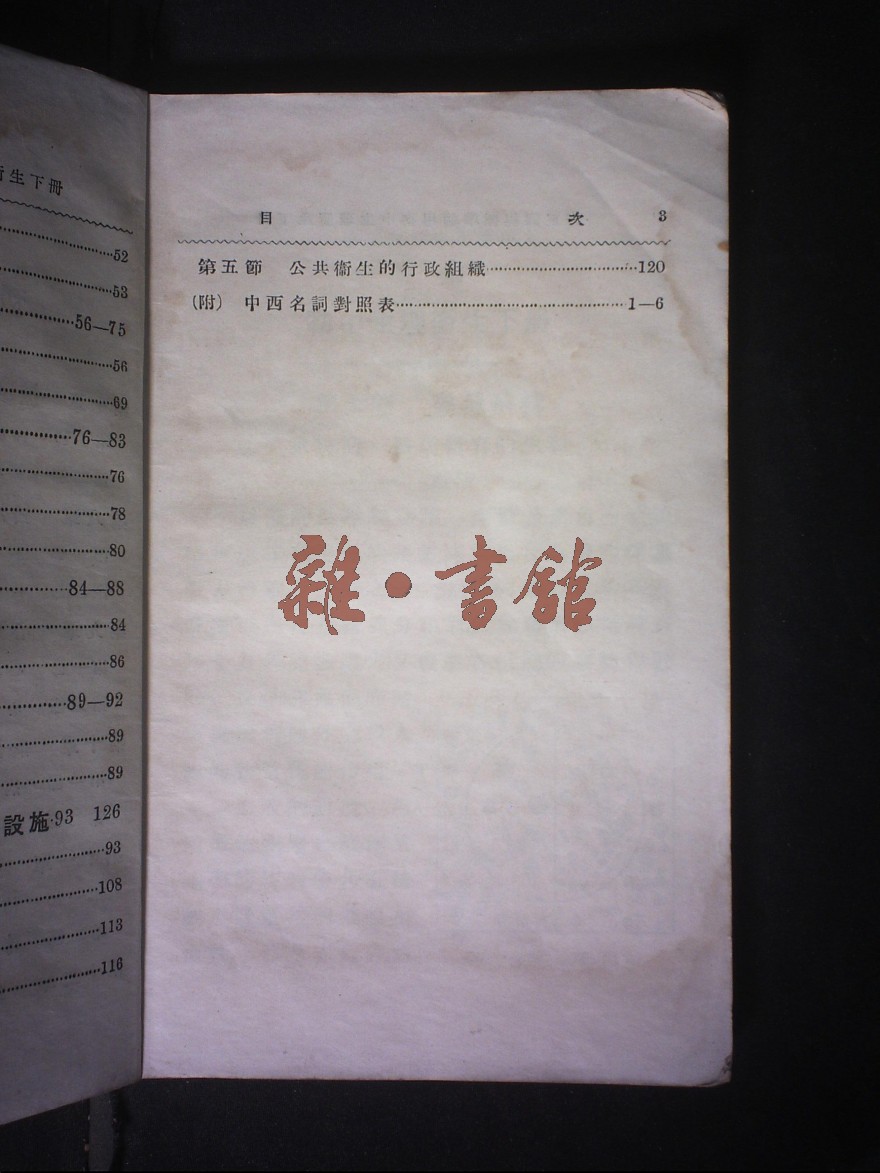 生下冊
52
53
56—75
56
69
76—83
76
78
80
84—88
84
86
89—92
89
89
設施·93 126
93
108
113
116
目 次 3
第五節 公共衞生的行政組織 120
(附) 中西名詞對照表 1—6
雜·書館